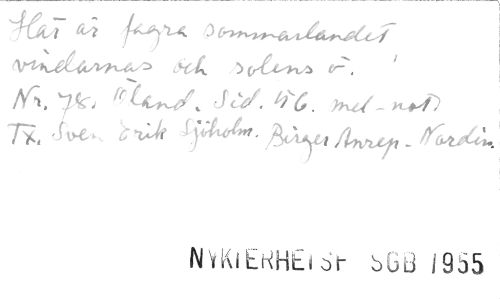 Här är fagra sommarlandet
vindarnas och solens ö.
Nr. 78. Öland. Sid. 46. mel-not.
Tx. Sven Erik Sjöholm. Birger Anrep-Nordin.
NYKTERHETSF SGB 1955